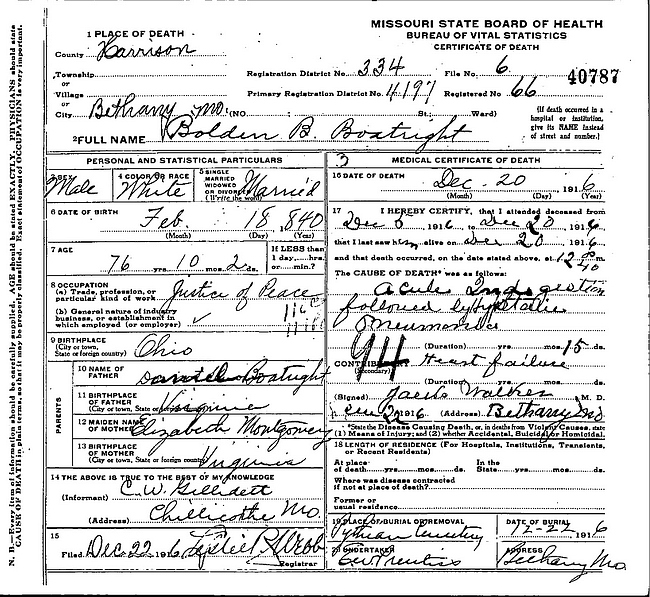 MISSOURI STATE BOARD OF HEALTH
BUREAU OF VITAL STATISTICS
CERTIFICATE OF DEATH
1 PLACE OF DEATH
County Harrison
Township
or
Village
or
City Bethany Mo. (NO. St.; Ward)
Registration District No. 334 File No. 6
40787
Primary Registration District No. 4197 Registered No. 66
(If death occurred in a
hospital or institution,
give its NAME instead
of street and number.)
2 FULL NAME Bolden B. Boatright
PERSONAL AND STATISTICAL PARTICULARS
3 SEX
Male
4 COLOR OR RACE
White
5 SINGLE
MARRIED
WIDOWED
OR DIVORCED
(Write the word)
Married
6 DATE OF BIRTH
Feb 18, 840
(Month) (Day) (Year)
7 AGE
76 yrs. 10 mos. 2 ds.
If LESS than
1 day,....hrs.
or.....min.?
8 OCCUPATION
(a) Trade, profession, or
particular kind of work
Justice of Peace
(b) General nature of industry
business, or establishment in
which employed (or employer)
9 BIRTHPLACE
(City or town,
State or foreign country)
Ohio
PARENTS
10 NAME OF
FATHER
Daniel Boatright
11 BIRTHPLACE
OF FATHER
(City or town, State or foreign country)
Virginia
12 MAIDEN NAME
OF MOTHER
Elizabeth Montgomery
13 BIRTHPLACE
OF MOTHER
(City or town, State or foreign country)
Virginia
14 THE ABOVE IS TRUE TO THE BEST OF MY KNOWLEDGE
(Informant) C.W.
(Address) Chillicothe Mo.
15
Filed Dec. 22 1916
Registrar
3
MEDICAL CERTIFICATE OF DEATH
16 DATE OF DEATH
Dec. 20, 1916
(Month) (Day) (Year)
17 I HEREBY CERTIFY, that I attended deceased from
Dec 5 1916, to Dec 20 1916
that I last saw him alive on Dec 20 1916
and that death occurred, on the date stated above, at 12 40 P m.
The CAUSE OF DEATH* was as follows:
Acute Indigestion
followed by Hypostatic
Pneumonia
(Duration) yrs. mos. 15 ds.
94
CONTRIBUTORY Heart failure
(Secondary)
(Duration) yrs. mos. ds.
(Signed) Walker M. D.
1916 (Address) Bethany Mo
*State the Disease Causing Death, or, in deaths from Violent Causes, state
(1) Means of Injury; and (2) whether Accidental, Suicidal or Homicidal.
18 LENGTH OF RESIDENCE (For Hospitals, Institutions, Transients,
or Recent Residents)
At place
of death yrs. mos. ds.
In the
State yrs. mos. ds.
Where was disease contracted
if not at place of death?
Former or
usual residence
19 PLACE OF BURIAL OR REMOVAL
Cemetery
DATE OF BURIAL
12-22, 1916
20 UNDERTAKER
Prentiss
ADDRESS
Bethany Mo.
N. B.—Every item of information should be carefully supplied. AGE should be stated EXACTLY. PHYSICIANS should state
CAUSE OF DEATH in plain terms, so that it may be properly classified. Exact statement of OCCUPATION is very important.